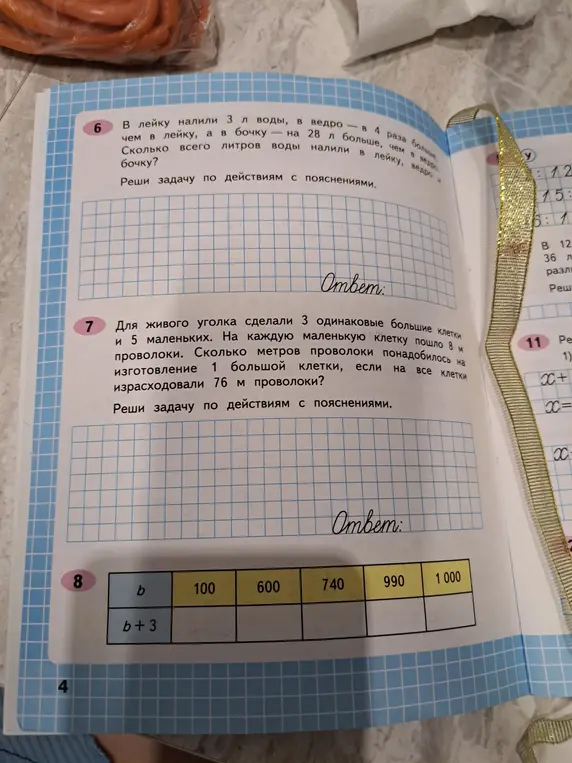 6 В лейку налили 3 л воды, в ведро — в 4 раза больше,
чем в лейку, а в бочку — на 28 л больше, чем в ведро.
Сколько всего литров воды налили в лейку, ведро и
бочку?
Реши задачу по действиям с пояснениями.
Ответ:
7 Для живого уголка сделали 3 одинаковые большие клетки
и 5 маленьких. На каждую маленькую клетку пошло 8 м
проволоки. Сколько метров проволоки понадобилось на
изготовление 1 большой клетки, если на все клетки
израсходовали 76 м проволоки?
Реши задачу по действиям с пояснениями.
Ответ:
8 b 100 600 740 990 1 000
b + 3
4
В 12
36 л
Реш
11 Ре
1)
x +
x =
x